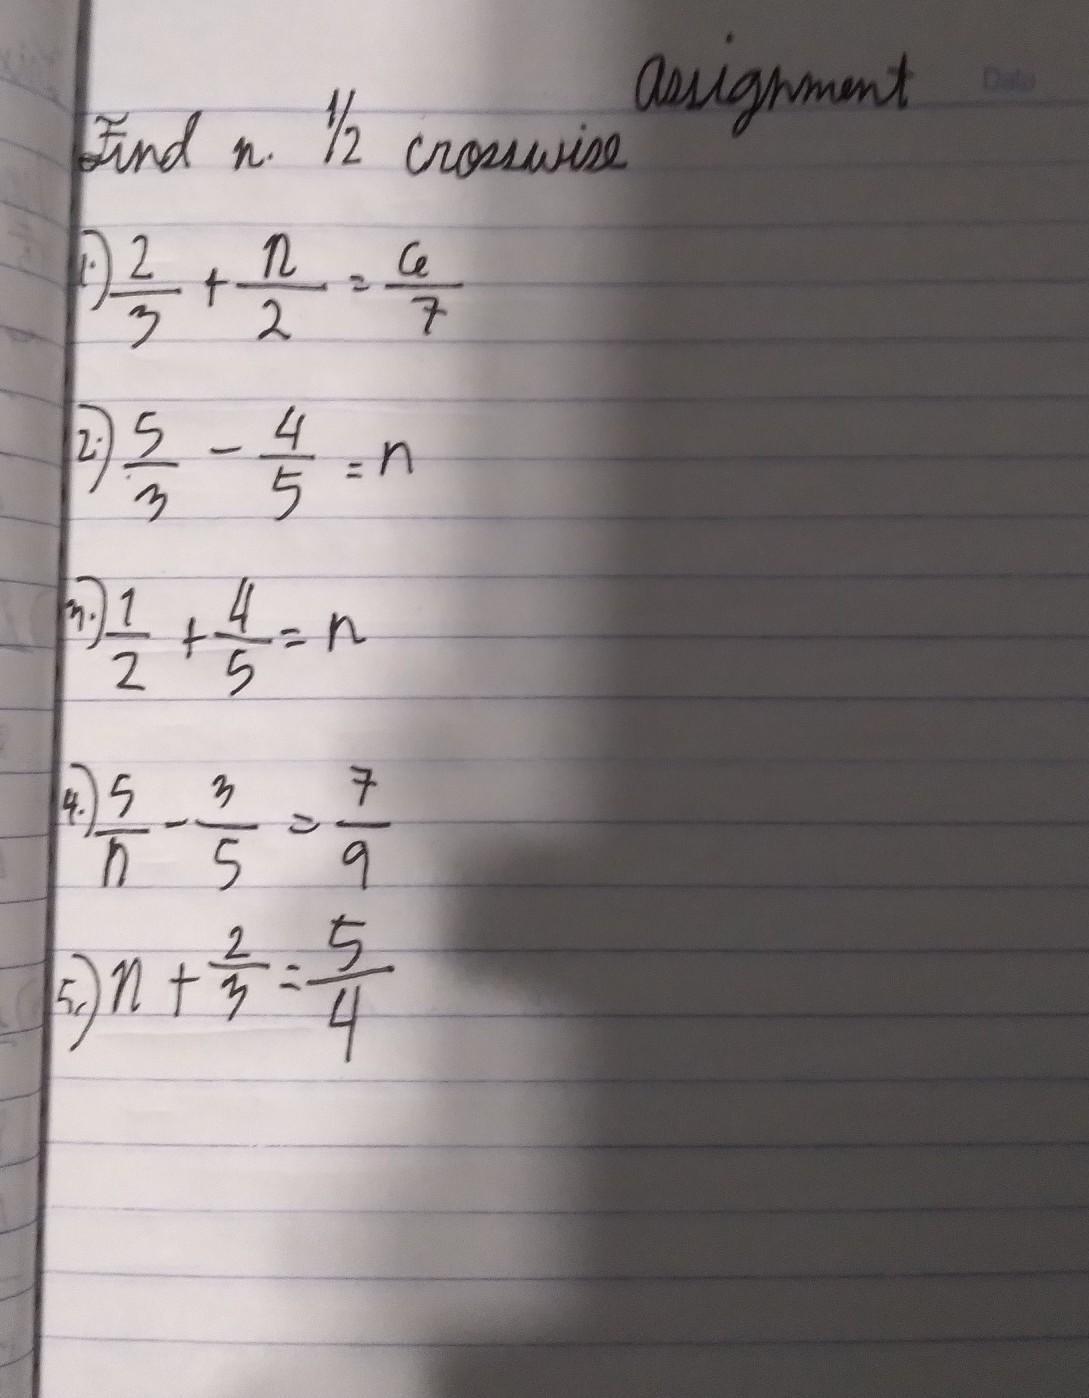 assignment Date
Find n. 1/2 crosswise
1.) 2/3 + n/2 = 6/7
2.) 5/3 - 4/5 = n
3.) 1/2 + 4/5 = n
4.) 5/n - 3/5 = 7/9
5.) n + 2/3 = 5/4